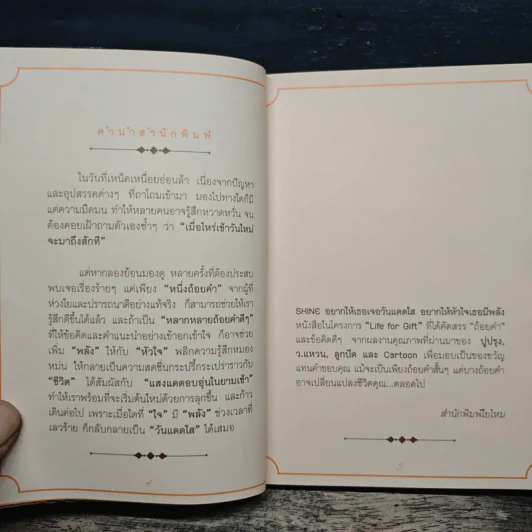 คำนำสำนักพิมพ์
ในวันที่เหน็ดเหนื่อยอ่อนล้า เนื่องจากปัญหา
และอุปสรรคต่างๆ ที่ถาโถมเข้ามา มองไปทางใดก็มี
แต่ความมืดมน ทำให้หลายคนอาจรู้สึกหวาดหวั่น จน
ต้องคอยเฝ้าถามตัวเองซ้ำๆ ว่า "เมื่อไหร่เช้าวันใหม่
จะมาถึงสักที"
แต่หากลองย้อนมองดู หลายครั้งที่ต้องประสบ
พบเจอเรื่องร้ายๆ แค่เพียง "หนึ่งถ้อยคำ" จากผู้ที่
ห่วงใยและปรารถนาดีอย่างแท้จริง ก็สามารถช่วยให้เรา
รู้สึกดีขึ้นได้แล้ว และถ้าเป็น "หลากหลายถ้อยคำดีๆ"
ที่ให้ข้อคิดและคำแนะนำอย่างเข้าอกเข้าใจ ก็อาจช่วย
เพิ่ม "พลัง" ให้กับ "หัวใจ" พลิกความรู้สึกหมอง
หม่น ให้กลายเป็นความสดชื่นกระปรี้กระเปร่าราวกับ
"ชีวิต" ได้สัมผัสกับ "แสงแดดอบอุ่นในยามเช้า"
ทำให้เราพร้อมที่จะเริ่มต้นใหม่ด้วยการลุกขึ้น และก้าว
เดินต่อไป เพราะเมื่อใดที่ "ใจ" มี "พลัง" ช่วงเวลาที่
เลวร้าย ก็กลับกลายเป็น "วันแดดใส" ได้เสมอ
4
SHINE อยากให้เธอเจอวันแดดใส อยากให้หัวใจเธอมีพลัง
หนังสือในโครงการ "Life for Gift" ที่ได้คัดสรร "ถ้อยคำ"
และข้อคิดดีๆ จากผลงานคุณภาพที่ผ่านมาของ ปูปรุง,
ว.แหวน, ลูกปัด และ Cartoon เพื่อมอบเป็นของขวัญ
แทนคำขอบคุณ แม้จะเป็นเพียงถ้อยคำสั้นๆ แต่บางถ้อยคำ
อาจเปลี่ยนแปลงชีวิตคุณ...ตลอดไป
สำนักพิมพ์ใยไหม
5